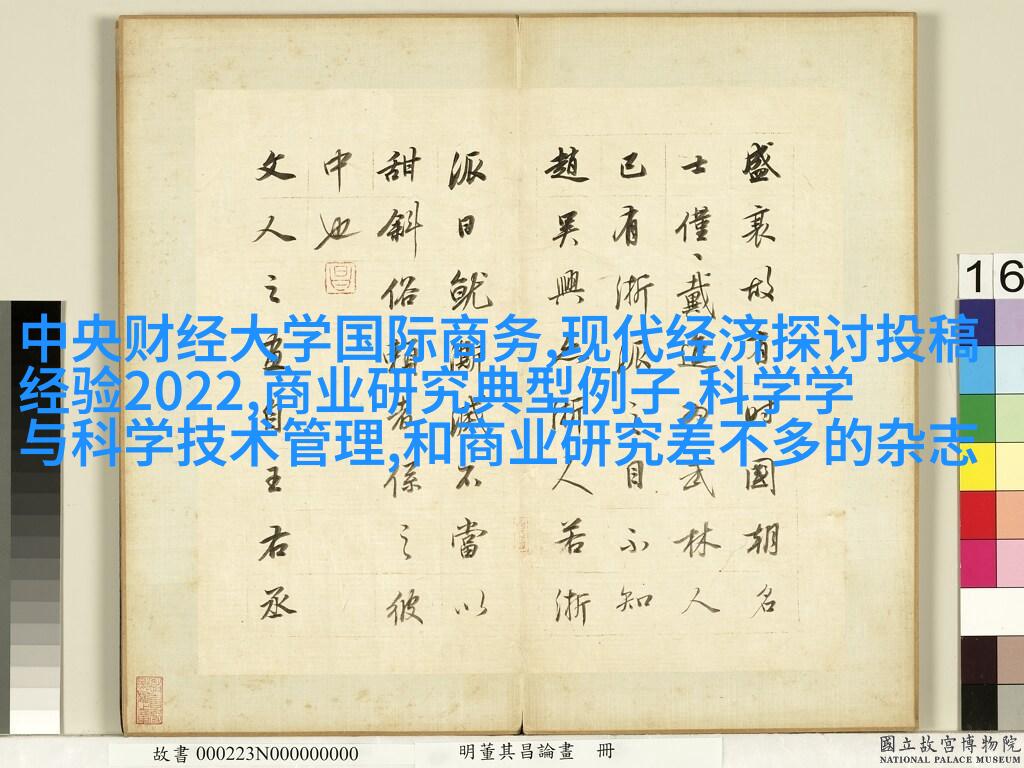 中央财经大学国际商务,现代经济探讨投稿
经验2022,商业研究典型例子,科学学
与科学技术管理,和商业研究差不多的杂志
盛衰故有時國朝名
士僅、戴進為武林人
已有浙派之目不知
趙吳興亦浙人若浙
派日就澌滅不當以
甜斜俗賴者係之彼
中也
文人之畫自王右丞
16
故書 000223N000000000
明董其昌論畫 冊
國立故宮博物院
NATIONAL PALACE MUSEUM